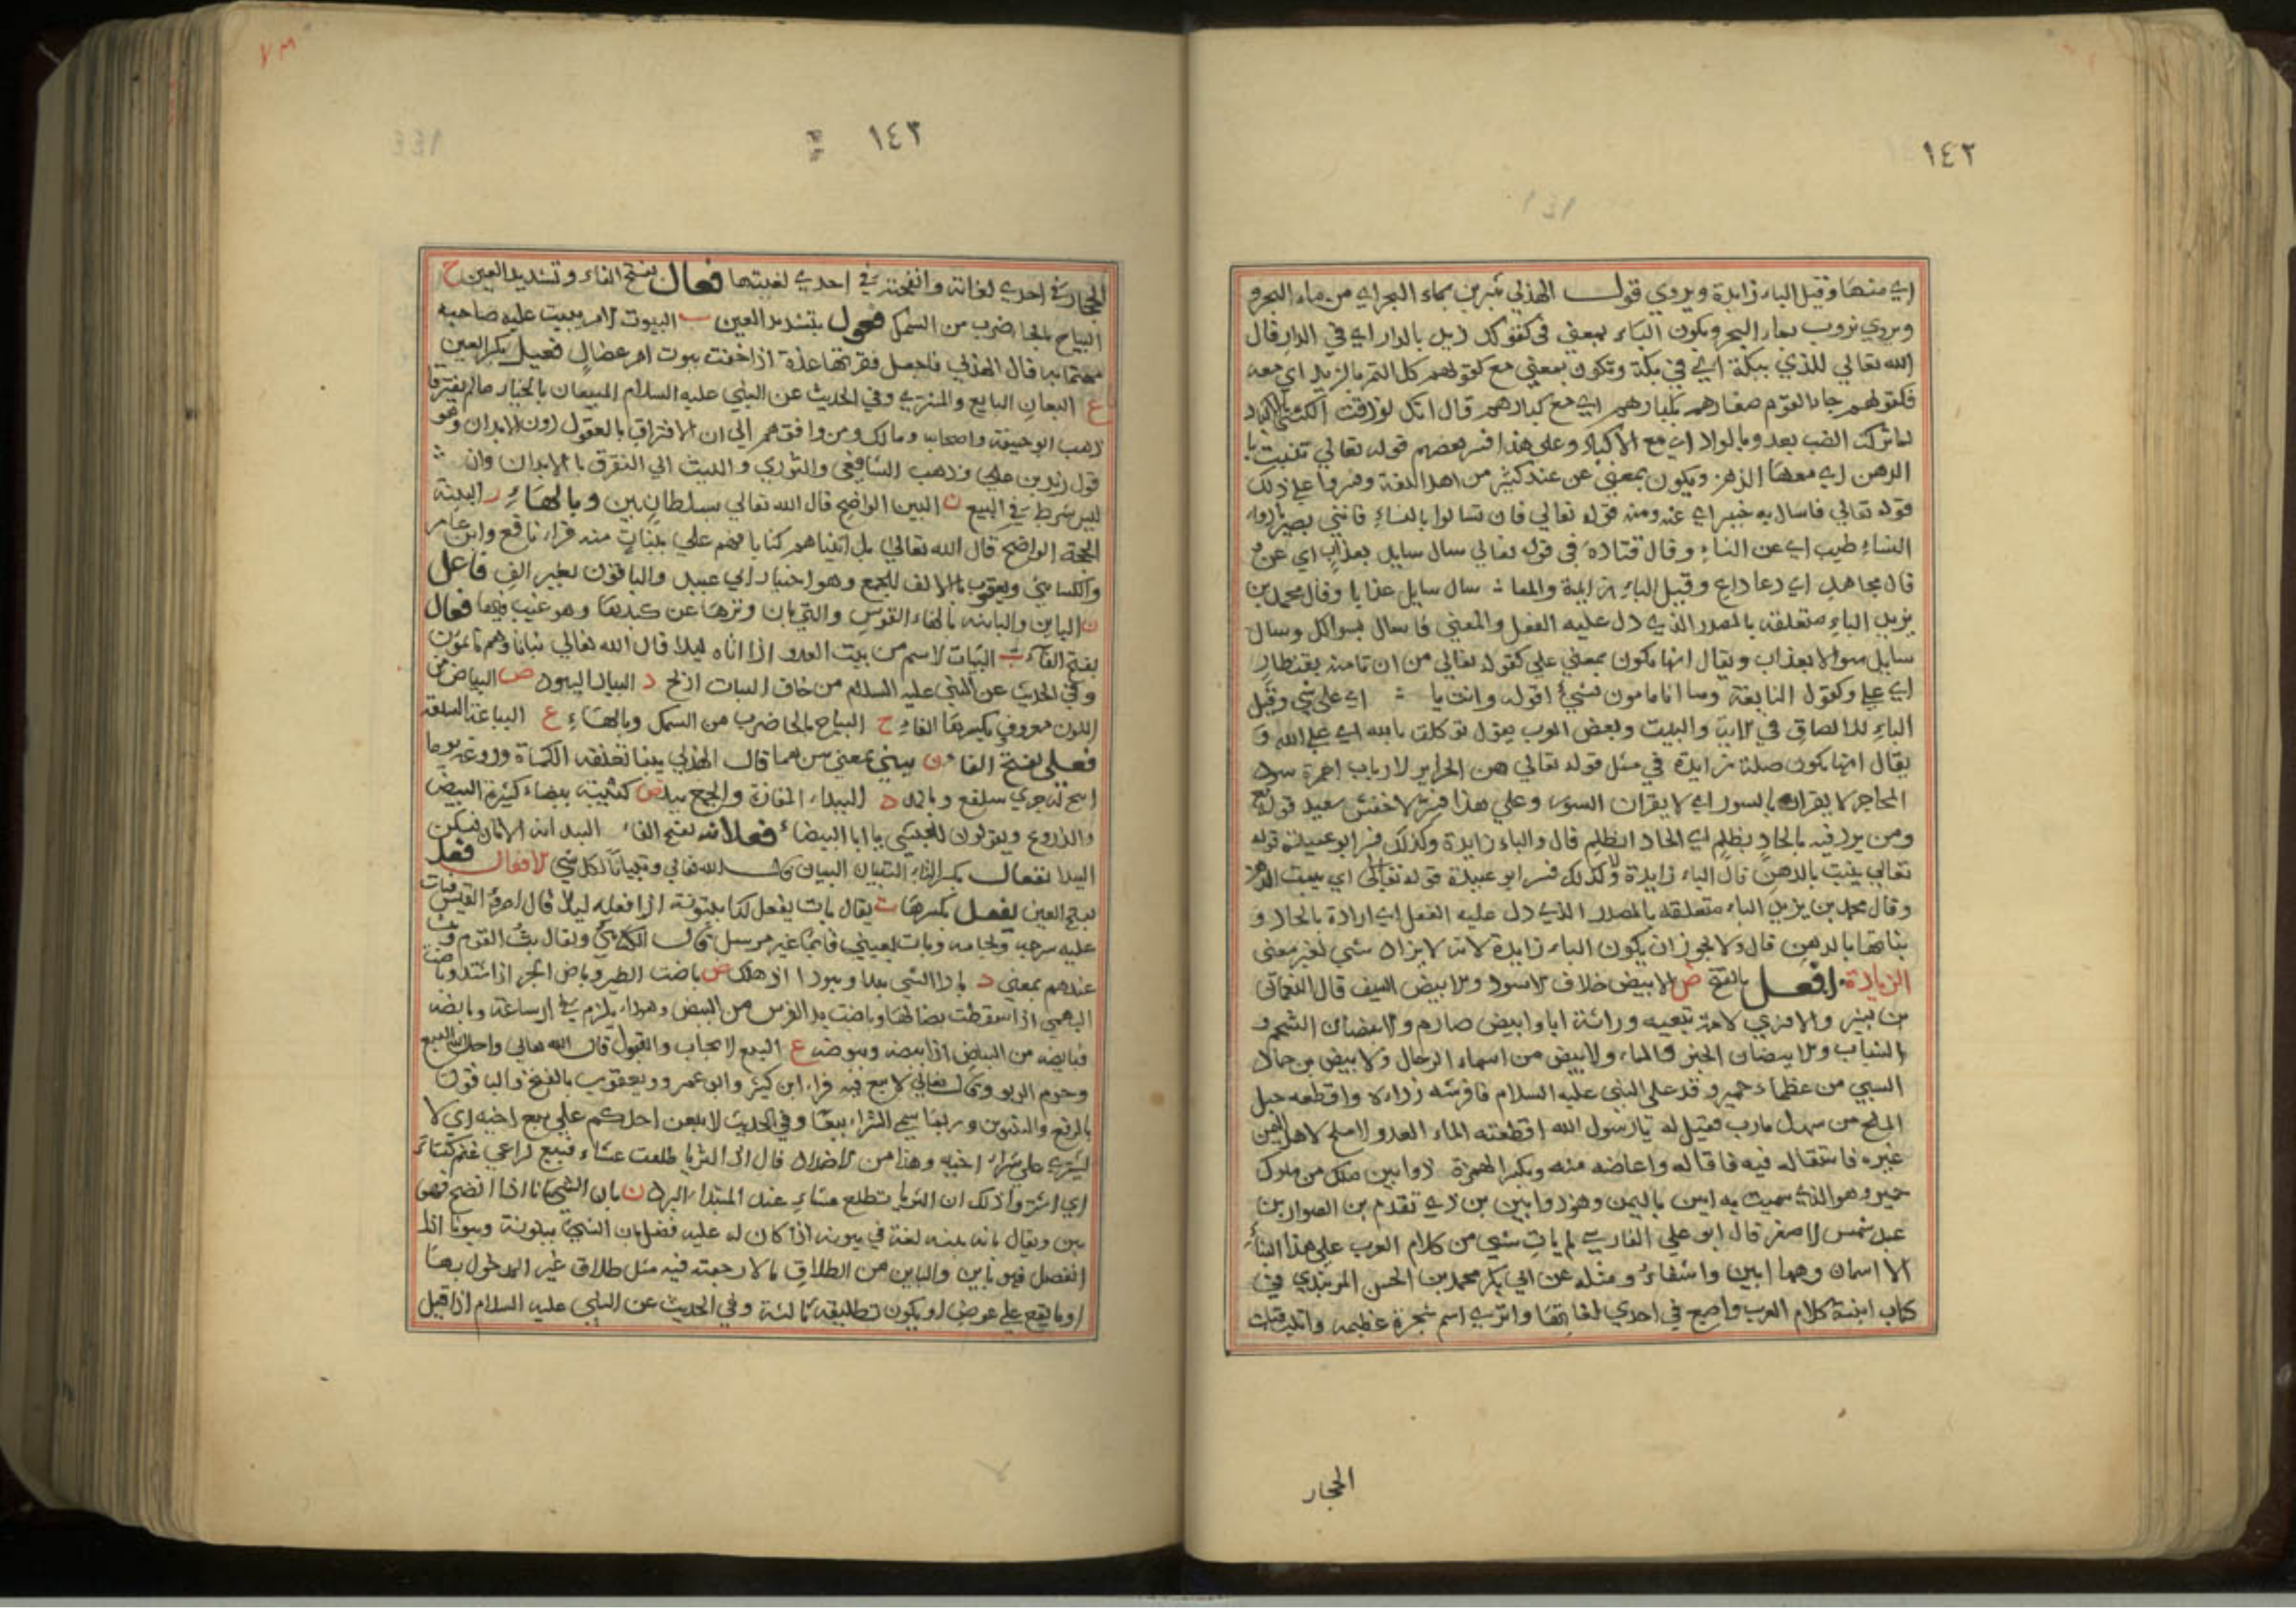 ١٤٢
اي منها وقيل الباء زايدة ويروي قول الهذلي شربن بماء البحر اي من ماء البحر و
ويروي تروب بماء البحر ويكون الباء بمعنى في كقولك زيل بالدار اي في الدار قال
الله تعالي للذي ببكة اي في بكة وتكون بمعني مع كقولهم كل التمر بالزبد اي معه
فكقولهم جاء القوم صغارهم بكبارهم اي مع كبارهم قال
لما تركت الضب يعدو بالواد اي مع الاكباد وعلى هذا فسر بعضهم قوله تعالي تنبت با
الدهن اي معها الدهن ويكون بمعني عن عند كثير من اهل اللغة وفسروا علي ذلك
قوله تعالي فاسال به خبيرا اي عنه ومنه قوله تعالي فان تسالوا بالنساء فانني بصير بادواء
النساء طبيب اي عن النساء وقال قتادة في قوله تعالي سال سايل بعذاب اي عن و
قال مجاهد اي دعا داع وقيل الباء زايدة والمعنا سال سايل عذابا وقال محمد بن
يزيد الباء متعلقة بالمصدر الذي دل عليه الفعل والمعني فاسال بسوالك وسال
سايل سوالا بعذاب ويقال انها يكون بمعني علي كقوله تعالي من ان تامنه بقنطار
اي علي وكقول النابغة وما انا مامون بشيء اقوله وانت يا اي علي شي وقيل
الباء للالصاق في الاية والبيت وبعض العرب يقول توكلت بالله اي علي الله و
يقال انها يكون صلة زايدة في مثل قوله تعالي هن الحراير لا ربات احمرة سود
المحاجر لا يقران بالسور اي لا يقران السور وعلي هذا فسر الاخفش سعيد قوله تع
ومن يرد فيه بالحاد بظلم اي الحاد ابظلم قال والباء زايدة وكذلك فسر ابو عبيدة قوله
تعالي ينبت بالدهن قال الباء زايدة وكذلك فسر ابو عبيدة قوله تعالي اي ينبت الدهن
وقال محمد بن يزيد الباء متعلقة بالمصدر الذي دل عليه الفعل اي ارادة بالحاد و
بناتها بالدهن قال ولا يجوز ان يكون الباء زايدة لانه لا يزاد شي لغير معنى
الزيادة افعل بالفتح ض الابيض خلاف الاسود والابيض السيف قال النعمان
من بشير والازدي لامة تبعيه وراثة ابا وابيض صارم والابيضان الشحم و
الشباب والابيضان الخبز والماء والابيض من اسماء الرجال والابيض بن حمال
السبي من عظماء حمير وفد على النبي عليه السلام فافرشه رداءه واقطعه جبل
الملح من سهل مارب فقيل له يا رسول الله اقطعته الماء العد ولا ملح لاهل اليمن
غيره فاستقاله فيه فاقاله واعاضه منه وبكسر الهمزة ذوابين ملك من ملوك
حمير وهو الذي سميت به ابين باليمن وهو ذوابين بن ذي تقدم بن الصوار بن
عبد شمس الاصغر قال ابو علي الفارسي لم يات شي من كلام العرب علي هذا البناء
الا اسمان وهما ابين واشفاء ومثله عن ابي بكر محمد بن الحسن الزبيدي في
كتاب ابنية كلام العرب واصبع في احدي لغاتها واثري اسم شجرة عظيمه وابليقات
الحجار
١٤٣
الحجار في احدي لغاته وانفحة في احدي لغيتها فعال بفتح الفاء وتشديد العين ح
البياح بالحا ضرب من السمك فعول بتشديد العين ت البيوت الامر يبيت عليه صاحبه
مهتما به قال الهذلي فاجعل فقرتها عدة اذا خفت بيوت امر عضال فعيل بكسر العين
ع البيعان البايع والمشتري وفي الحديث عن النبي عليه السلام البيعان بالخيار ما لم يفترقا
ذهب ابو حنيفة واصحابه ومالك ومن وافقهم الي ان الافتراق بالقول دون الابدان وهو
قول زيد بن علي وذهب الشافعي والثوري والليث الي التفرق بالابدان وانه
ليس شرط في البيع ن البين الواضح قال الله تعالي بسلطان بين وبالهاء ر البينة
الحجة الواضح قال الله تعالي بل اتيناهم كتابا فهم علي بينات منه قراء نافع وابن عامر
والكسائي ويعقوب بالالف للجمع وهو اختيار ابي عبيد والباقون بغير الف فاعل
ن الباين والباينه بالهاء القوس والتي بان وترها عن كبدها وهو عيب فيها فعال
بفتح الفاء ت البيات الاسم من بيت العدو اذا اتاه ليلا قال الله تعالي بياتا وهم نايمون
وفي الحديث عن النبي عليه السلام من خاف البيات ادلج د البياد البيود ض البياض من
اللون معروف بكسرها الفاء ح البياح بالحا ضرب من السمك وبالهاء ع البياعة السلعة
فعلى بفتح الفا ن بيني بمعنى بين هما قال الهذلي بينا تعنقه الكماة وروغه يوما
اتيح له جري سلفع وبالمد د البيداء المفازة والجمع بيد ض كتيبة بيضاء كثيرة البيض
والدروع ويقولون للحبشي يا ابا البيضاء فعلانه بفتح الفاء البيدانه الاتان تسكن
البيدا تفعال بكسر التاء التبيان البيان قال الله تعالي وتبيانا لكل شي الافعال فعل
بفتح العين يفعل بكسرها ت يقال بات يفعل كذا بيتوتة اذا فعله ليلا قال امرؤ القيس فبات
عليه سرجه ولجامه وبات بعيني قايما غير مرسل قال الكلابي ويقال بت القوم وبت
عندهم بمعني د بادا الشي بيدا وبيودا اذا هلك ض باضت الطير وباض الحر اذا اشتد وباضت
البهمي اذا سقطت نصالها وباضت يد الفرس من البيض وهو داء يلزم في ارساغه وبايضه
فبايضه من البياض اذا ابيضه ويبوضه ع البيع الايجاب والقبول قال الله تعالي واحل الله البيع
وحرم الربو وقال تعالي لا بيع فيه قراء ابن كثير وابو عمرو ويعقوب بالفتح والباقون
بالرفع والتنوين وربما سمي الشراء بيعا وفي الحديث لا يبيعن احدكم علي بيع اخيه اي لا
ليشتري علي شراء اخيه وهذا من الاضداد قال اذا الثريا طلعت عشاء فبيع لراعي غنم كساء
اي اشتر وذلك ان الثريا تطلع عشاء عند المبتداء البرد ن بان الشي بيانا اذا اتضح فهو
بين ويقال بانه بينه لغة في يبونه اذا كان له عليه فضل بان الشي بينونة وبيونا اذا
انفصل فهو باين والباين من الطلاق مالا رجعة فيه مثل طلاق غير المدخول بها
او ما يقع علي عوض او يكون تطليقه ثالثة وفي الحديث عن النبي عليه السلام اذا قيل